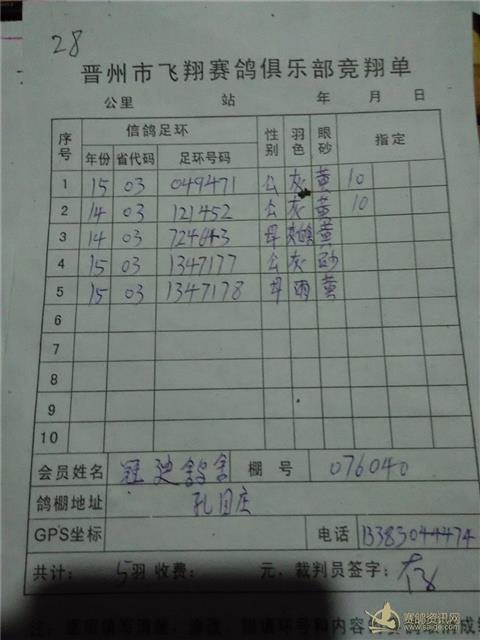 28
晋州市飞翔赛鸽俱乐部竞翔单
公里 站 年 月 日
序号 信鸽足环 性别 羽色 眼砂 指定
年份 省代码 足环号码
1 15 03 049471 公 灰 黄 10
2 14 03 121452 公 灰 黄 10
3 14 03 724643 母 黄
4 15 03 1347177 公 灰 砂
5 15 03 1347178 母 雨 黄
6
7
8
9
10
会员姓名 冠 鸽舍 棚号 076040
鸽棚地址 孔目庄
GPS坐标 电话 13383044474
共计: 5羽 收费: 元. 裁判员签字:
赛鸽资讯网
www.saige.com